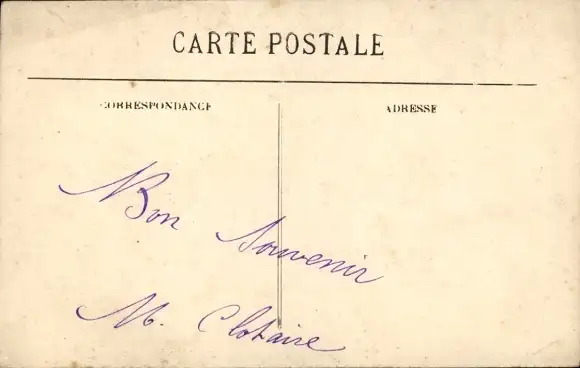 CARTE POSTALE
CORRESPONDANCE
ADRESSE
Bon Souvenir
M. Clotaire